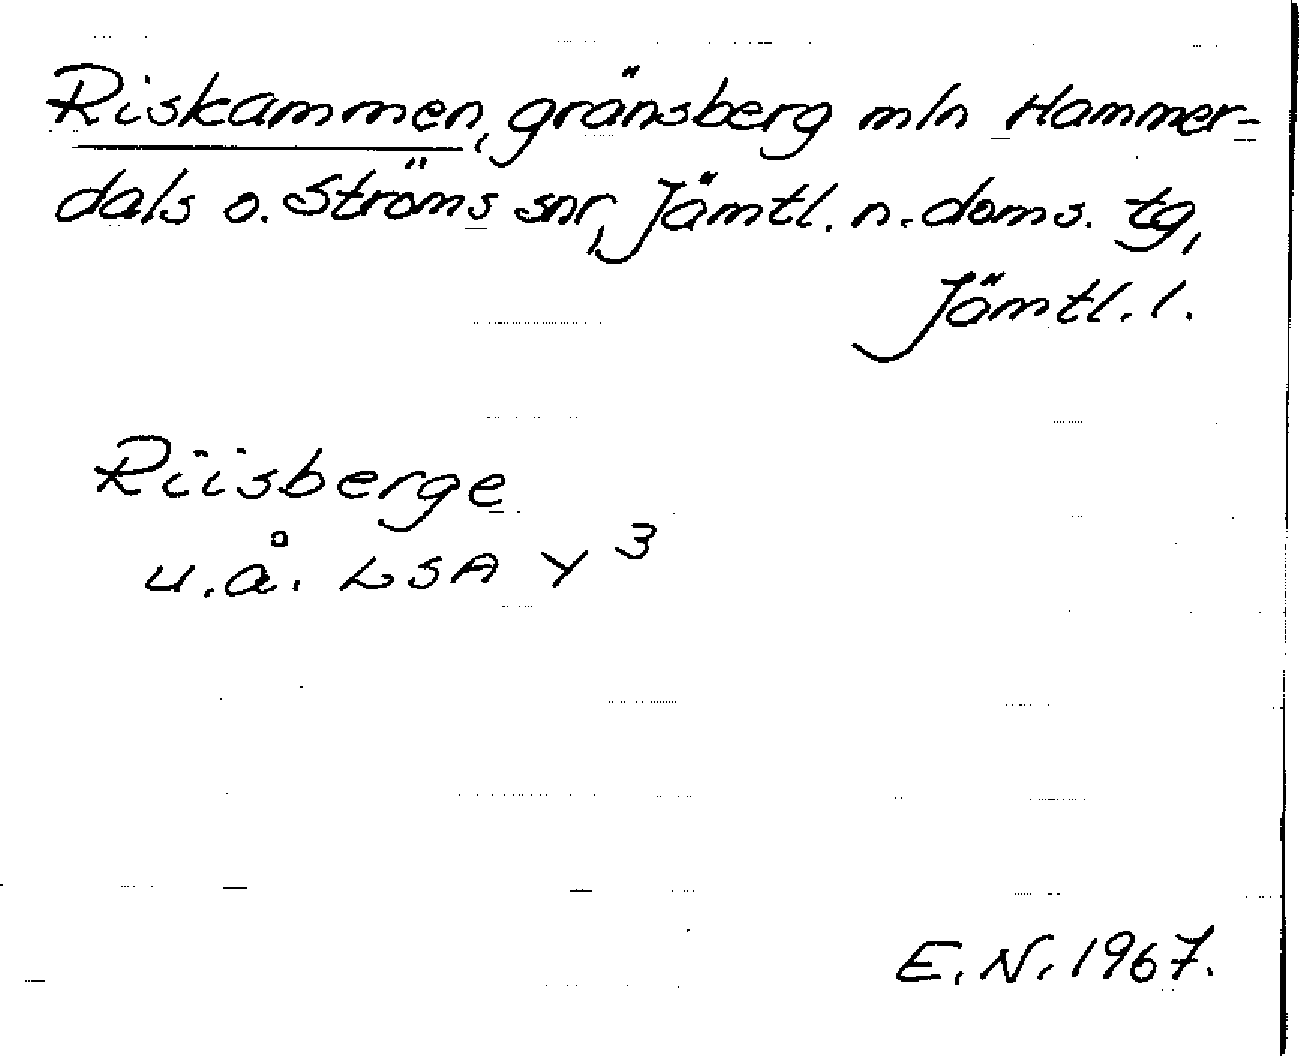 Riskammen, gränsberg mln Hammer-
dals o. Ströms snr, Jämtl. n. doms. tg,
Jämtl. l.
Riisberge
u.å. LSA Y 3
E. N. 1967.